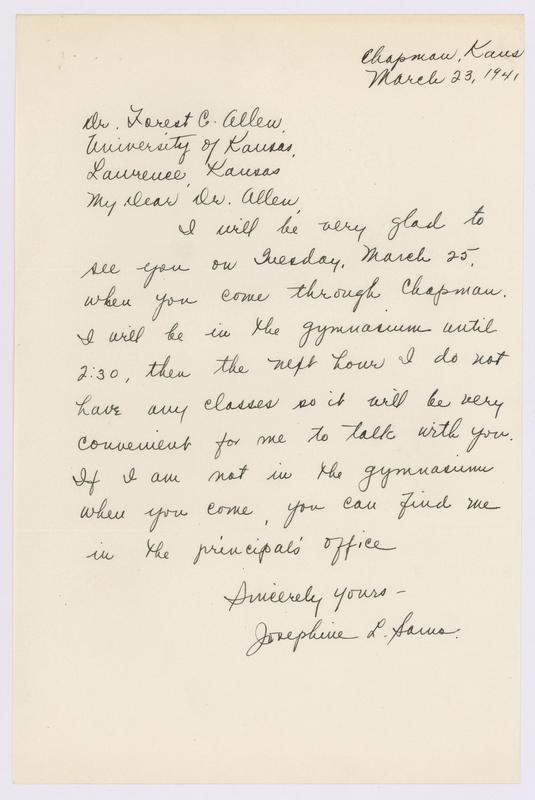 Chapman, Kans
March 23, 1941
Dr. Forest C. Allen,
University of Kansas,
Lawrence, Kansas
My Dear Dr. Allen,
I will be very glad to
see you on Tuesday, March 25,
when you come through Chapman.
I will be in the gymnasium until
2:30, then the next hour I do not
have any classes so it will be very
convenient for me to talk with you.
If I am not in the gymnasium
when you come, you can find me
in the principal's office
Sincerely yours -
Josephine L.